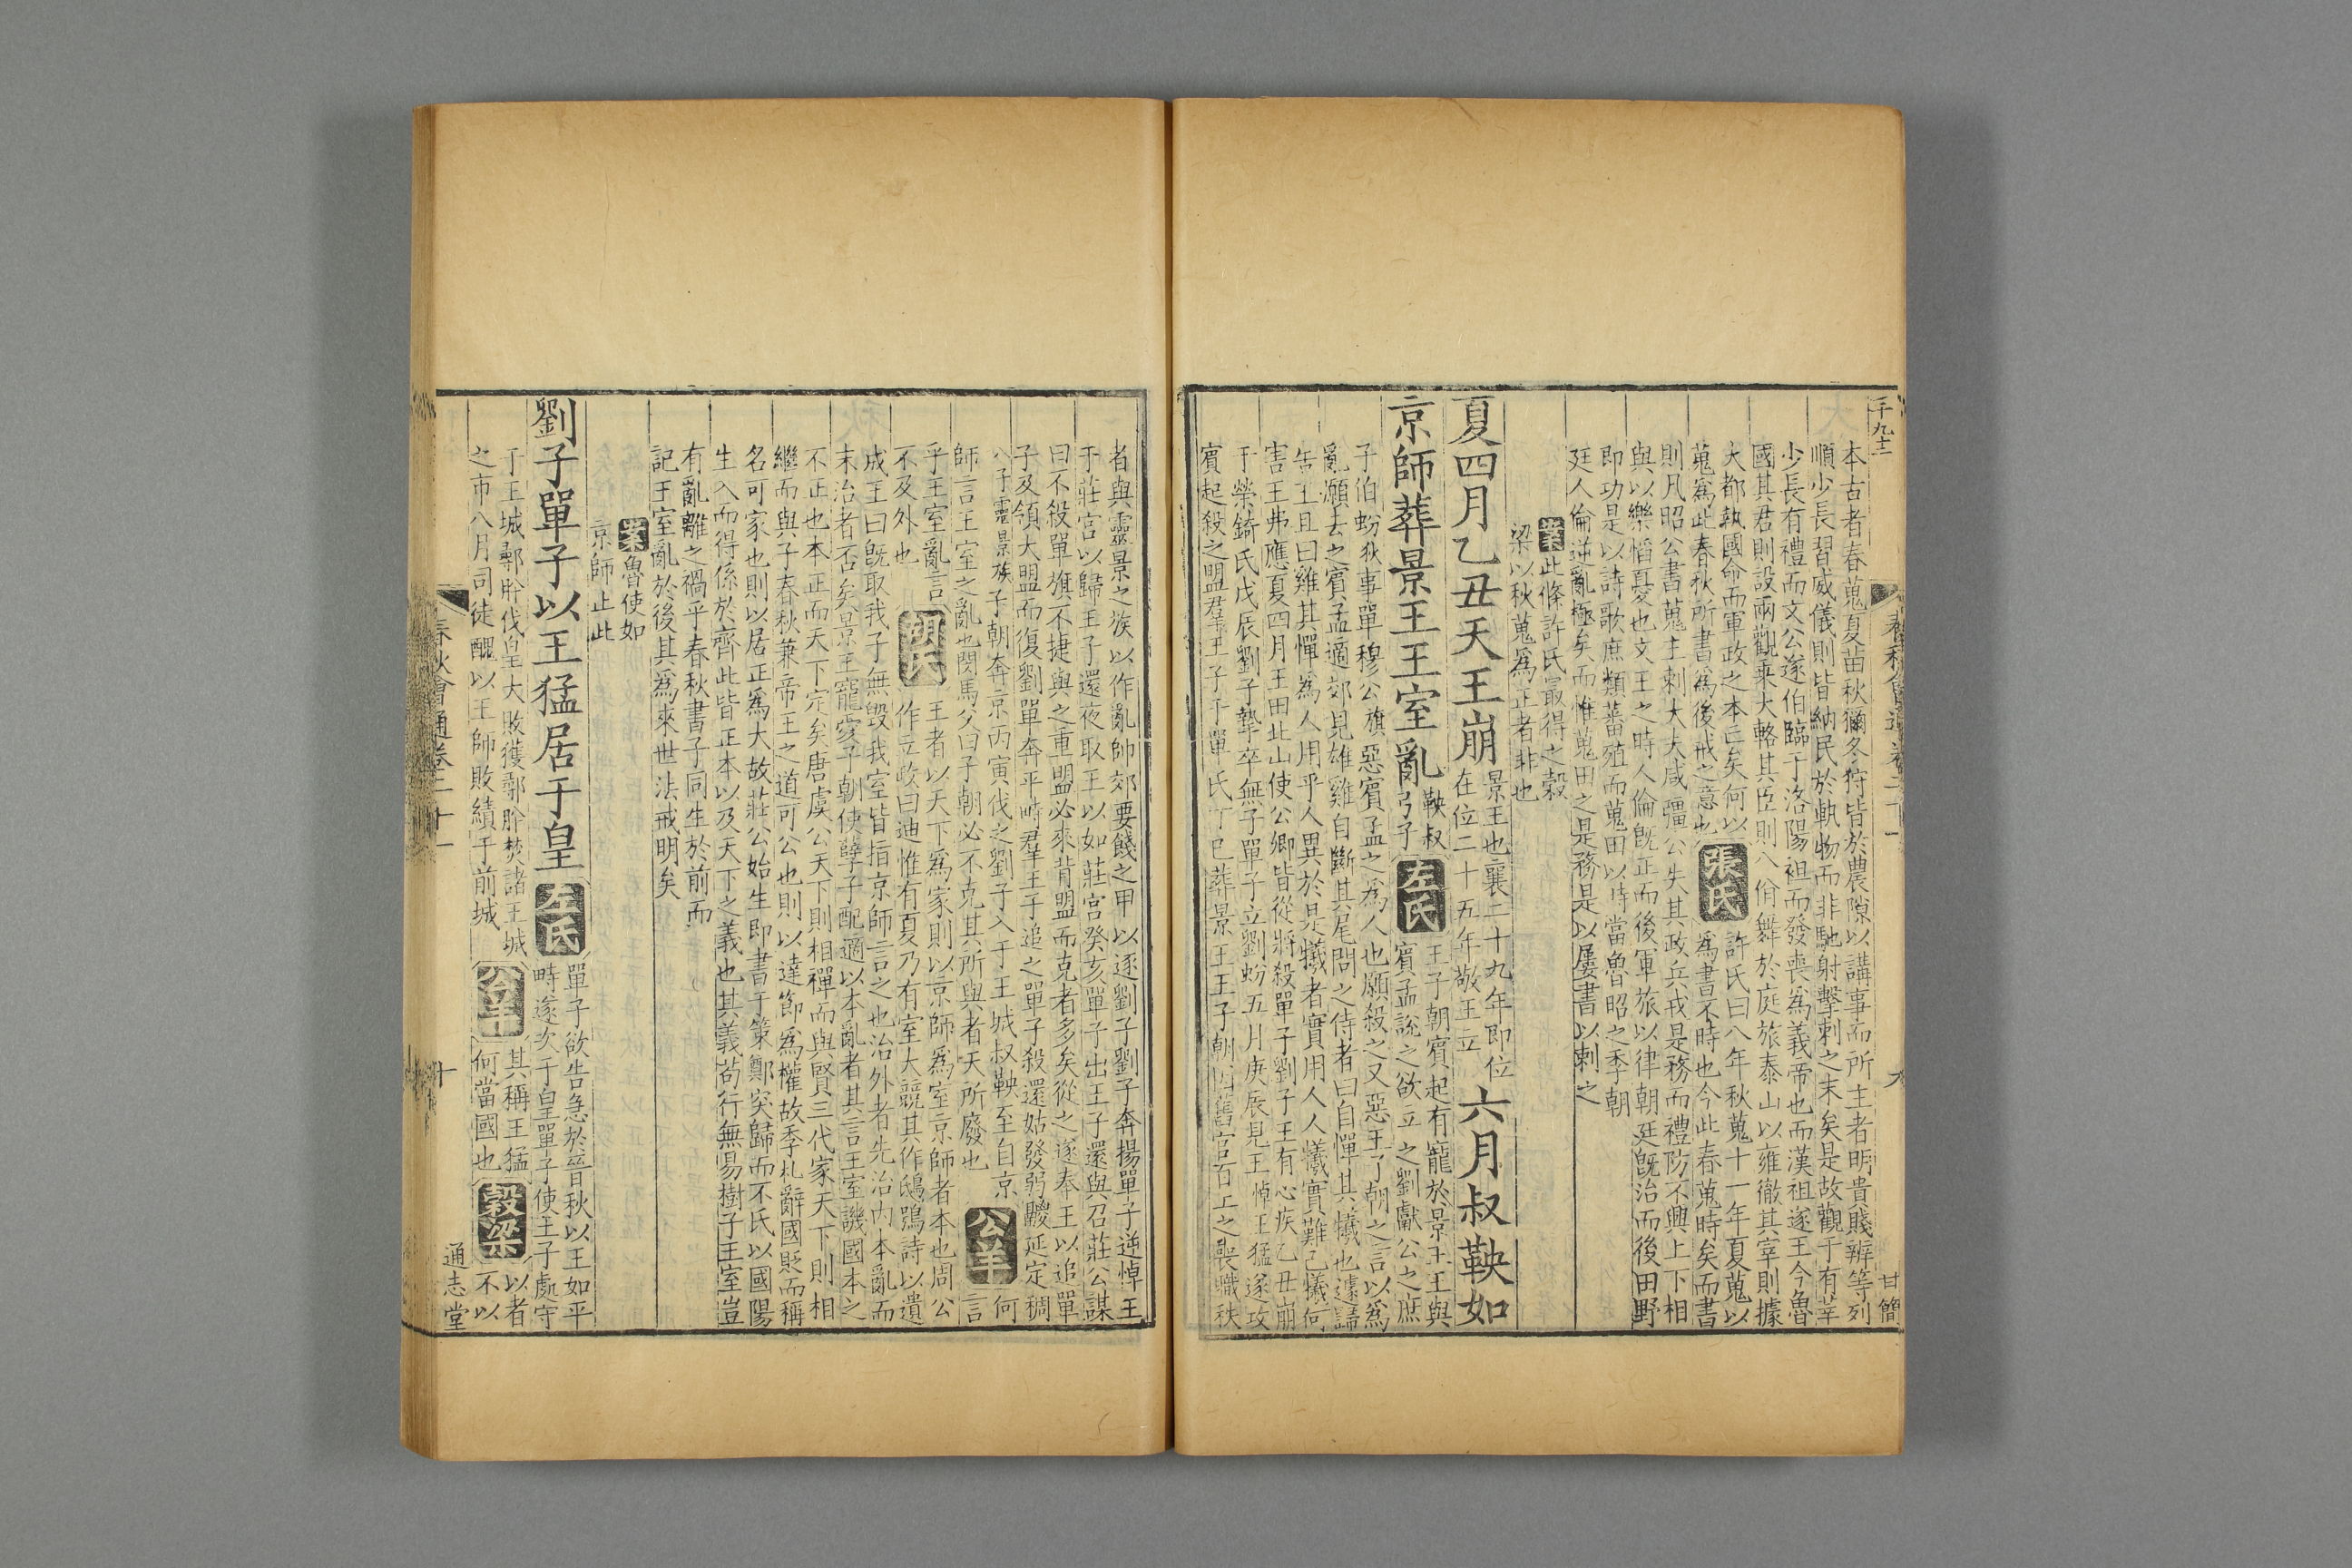 本古者春蒐夏苗秋獮冬狩皆於農隙以講事而所主者明貴賤辨等列
順少長習威儀則皆納民於軌物而非馳射擊刺之末矣是故觀于有莘
少長有禮而文公遂伯臨于洛陽袒而發喪為義帝也而漢祖遂王今魯
國其君則設兩觀乘大輅其臣則八佾舞於庭旅泰山以雍徹其宰則據
大都執國命而軍政之本亡矣何以
蒐為此春秋所書為後戒之意也
張氏
許氏曰八年秋蒐十一年夏蒐以
為書不時也今此春蒐時矣而書
則凡昭公書蒐主刺大夫咸彊公失其政兵戎是務而禮防不興上下相
與以樂慆憂也文王之時人倫旣正而後軍旅以律朝廷旣治而後田野
即功是以詩歌庶類蕃殖而蒐田以時當魯昭之季朝
廷人倫逆亂極矣而惟蒐田之是務是以屢書以刺之
案此條許氏最得之穀
梁以秋蒐為正者非也
夏四月乙丑天王崩
景王也襄二十九年即位
在位二十五年敬王立
六月叔鞅如
京師葬景王王室亂
鞅叔
弓子
左氏
王子朝賓起有寵於景王王與
賓孟說之欲立之劉獻公之庶
子伯蚡狄事單穆公旗惡賓孟之為人也願殺之又惡王子朝之言以為
亂願去之賓孟適郊見雄雞自斷其尾問之侍者曰自憚其犧也遽歸
告王且曰雞其憚為人用乎人異於是犧者實用人人犧實難己犧何
害王弗應夏四月王田北山使公卿皆從將殺單子劉子王有心疾乙丑崩
于榮錡氏戊辰劉子摯卒無子單子立劉蚡五月庚辰見王悼王猛遂攻
賓起殺之盟羣王子于單氏丁巳葬景王王子朝因舊官百工之喪職秩
者與靈景之族以作亂帥郊要餞之甲以逐劉子劉子奔揚單子逆悼王
于莊宮以歸王子還夜取王以如莊宮癸亥單子出王子還與召莊公謀
曰不殺單旗不捷與之重盟必來背盟而克者多矣從之遂奉王以追單
子及領大盟而復劉單奔平畤羣王子追之單子殺還姑發弱鬷延定稠
八子靈景族子朝奔京丙寅伐之劉子入于王城叔鞅至自京
師言王室之亂也閔馬父曰子朝必不克其所與者天所廢也
公羊
何
言
乎王室亂言
不及外也
胡氏
王者以天下為家則以京師為室京師者本也周公
作立政曰迪惟有夏乃有室大競其作鴟鴞詩以遺
成王曰旣取我子無毀我室皆指京師言之也治外者先治內本亂而
末治者否矣景王寵愛子朝使孽子配適以本亂者其言王室譏國本之
不正也本正而天下定矣唐虞公天下則相禪而與賢三代家天下則相
繼而與子春秋兼帝王之道可公也則以達節為權故季札辭國貶而稱
名可家也則以居正為大故莊公始生即書于策鄭突歸而不氏以國陽
生入而得係於齊此皆正本以及天下之義也其義苟行無易樹子王室豈
有亂離之禍乎春秋書子同生於前而
記王室亂於後其為來世法戒明矣
案魯使如
京師止此
劉子單子以王猛居于皇
左氏
單子欲告急於晉秋以王如平
畤遂次于皇單子使王子處守
于王城鄩肸伐皇大敗獲鄩肸焚諸王城
之市八月司徒醜以王師敗績于前城
公羊
其稱王猛
何當國也
穀梁
以者
不以
春秋會通卷二十一
十
通志堂